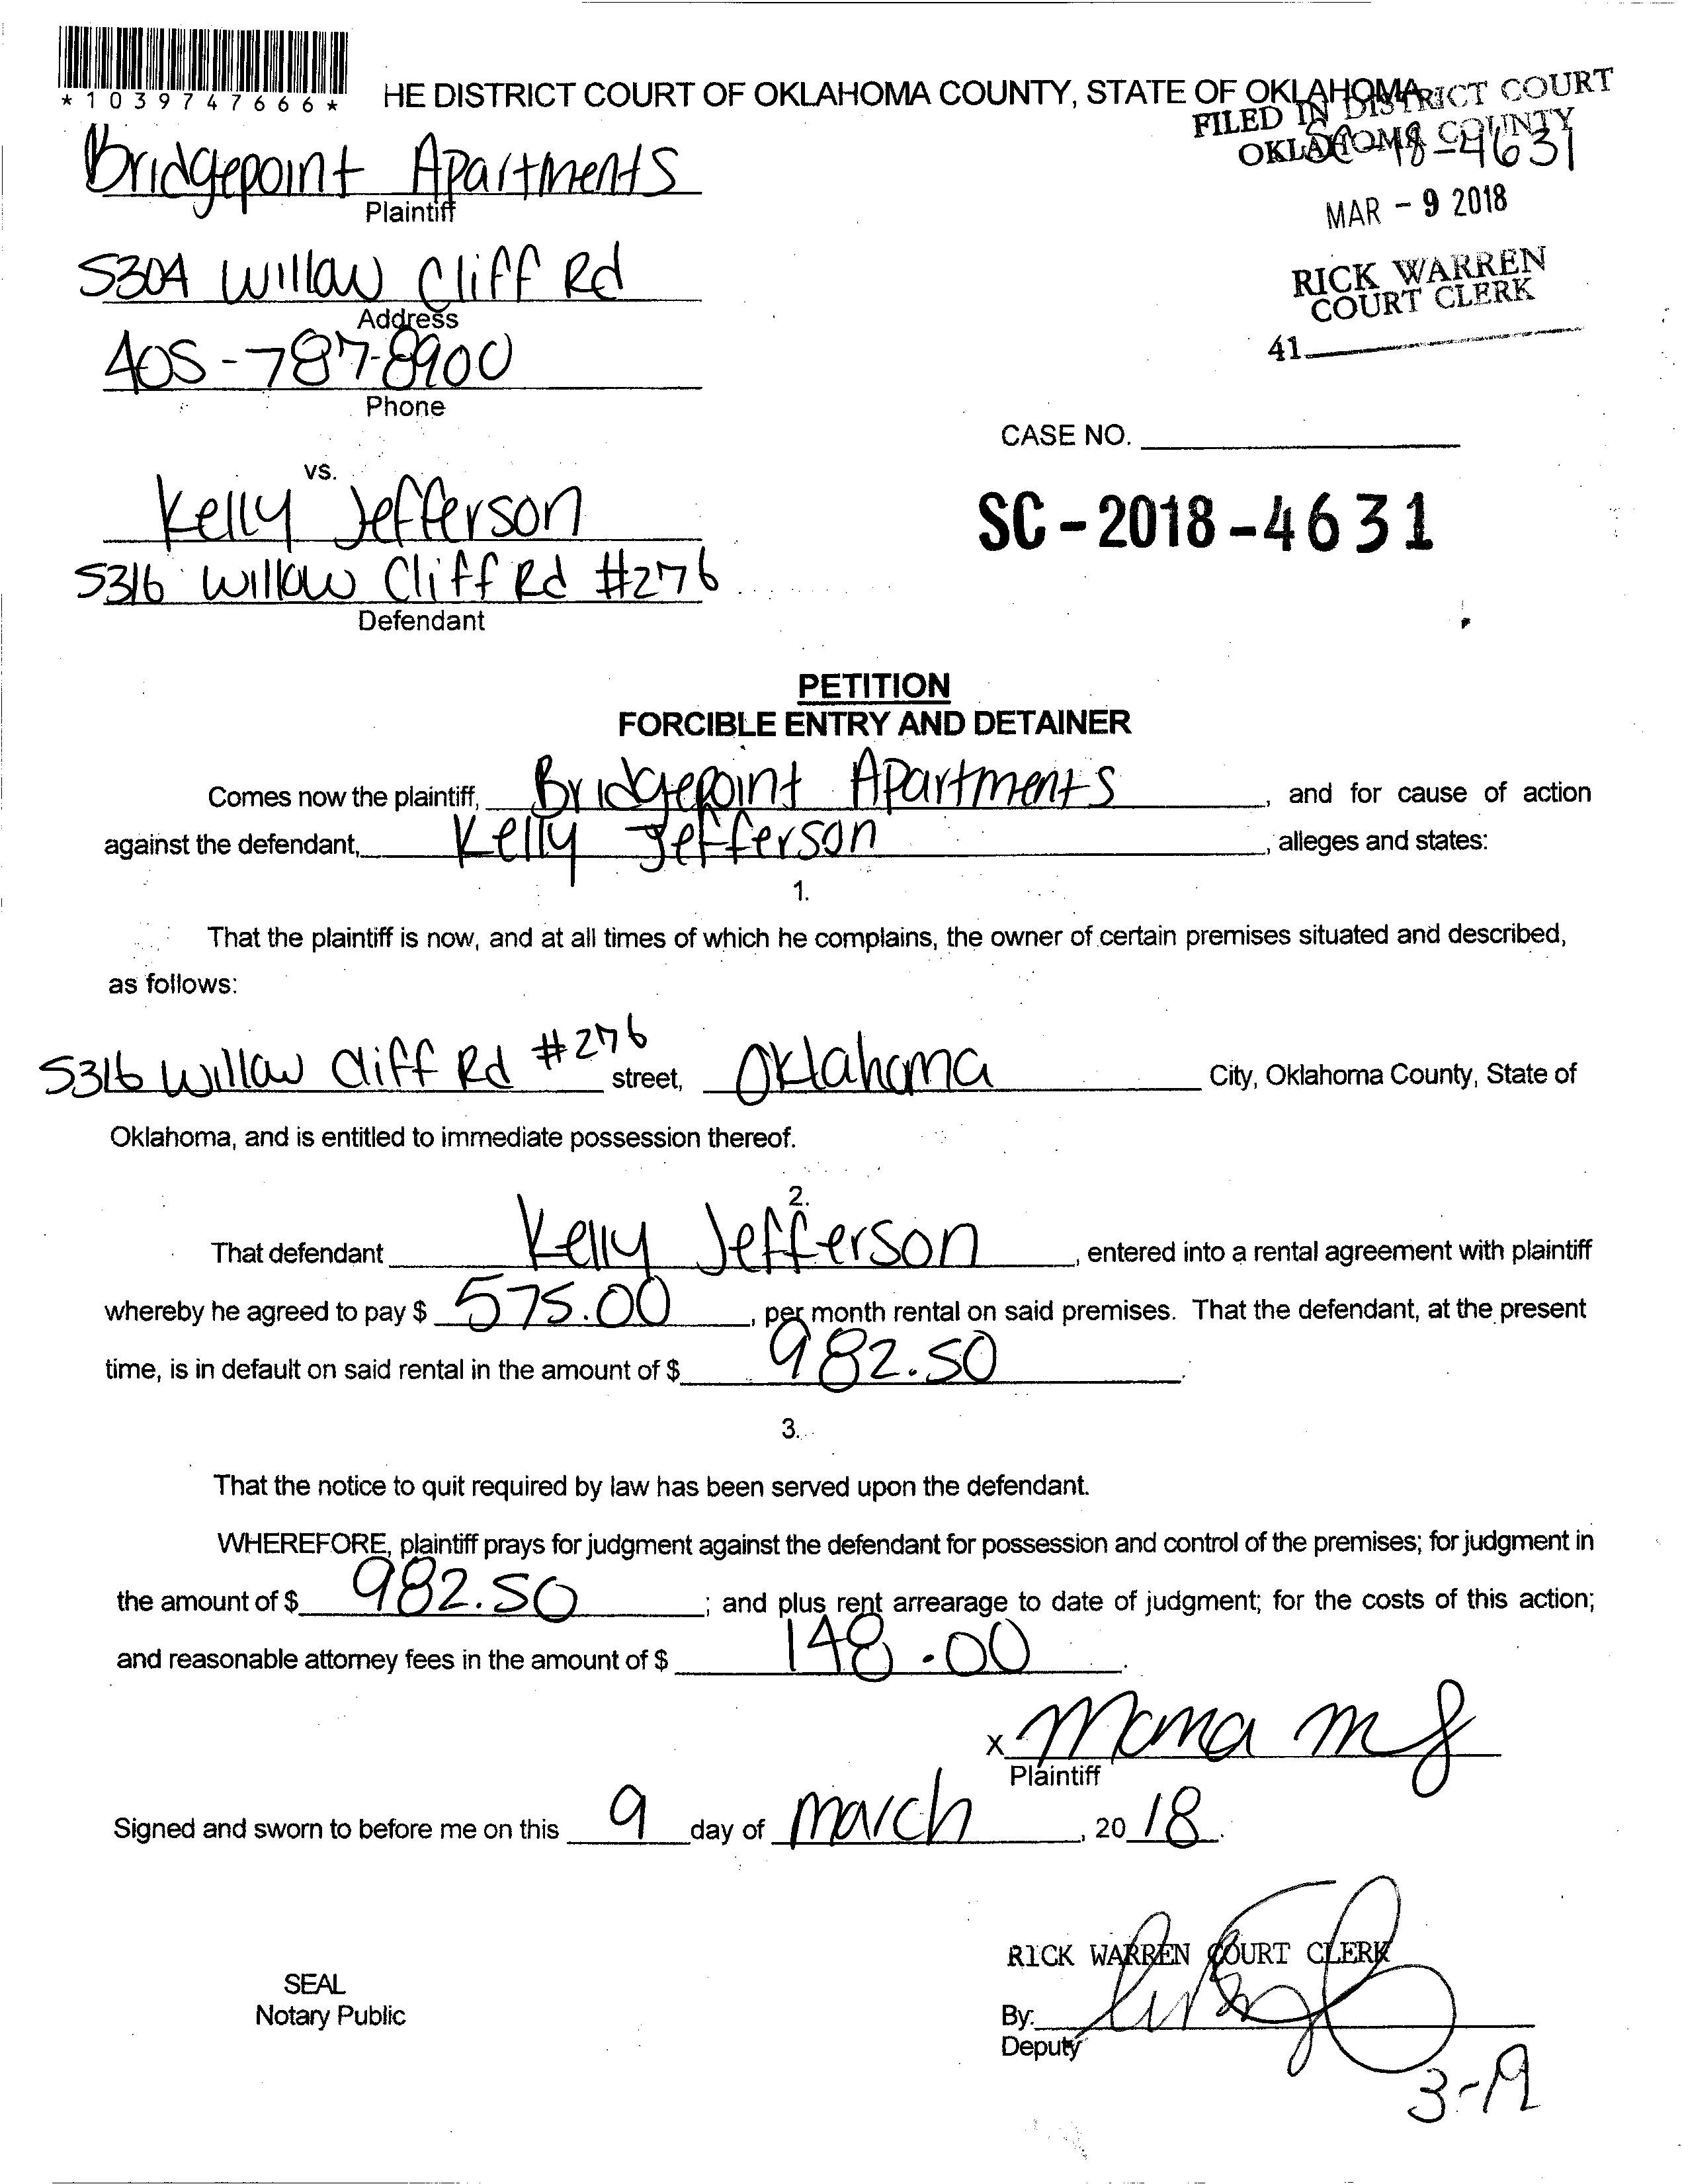 *1039747666*
HE DISTRICT COURT OF OKLAHOMA COUNTY, STATE OF OKLAHOMA
FILED IN DISTRICT COURT
OKLAHOMA COUNTY
SC-18-4631
MAR - 9 2018
RICK WARREN
COURT CLERK
41
Bridgepoint Apartments
Plaintiff
5304 Willow Cliff Rd
Address
405-787-8900
Phone
CASE NO.
vs.
Kelly Jefferson
SC-2018-4631
5316 Willow Cliff Rd #276
Defendant
PETITION
FORCIBLE ENTRY AND DETAINER
Comes now the plaintiff, Bridgepoint Apartments, and for cause of action
against the defendant, Kelly Jefferson, alleges and states:
1.
That the plaintiff is now, and at all times of which he complains, the owner of certain premises situated and described,
as follows:
5316 Willow Cliff Rd #276 street, Oklahoma City, Oklahoma County, State of
Oklahoma, and is entitled to immediate possession thereof.
2.
That defendant Kelly Jefferson, entered into a rental agreement with plaintiff
whereby he agreed to pay $ 575.00, per month rental on said premises. That the defendant, at the present
time, is in default on said rental in the amount of $ 982.50.
3.
That the notice to quit required by law has been served upon the defendant.
WHEREFORE, plaintiff prays for judgment against the defendant for possession and control of the premises; for judgment in
the amount of $ 982.50; and plus rent arrearage to date of judgment; for the costs of this action;
and reasonable attorney fees in the amount of $ 148.00.
X
Plaintiff
Signed and sworn to before me on this 9 day of March, 2018.
RICK WARREN COURT CLERK
SEAL
Notary Public
By:
Deputy
3-19